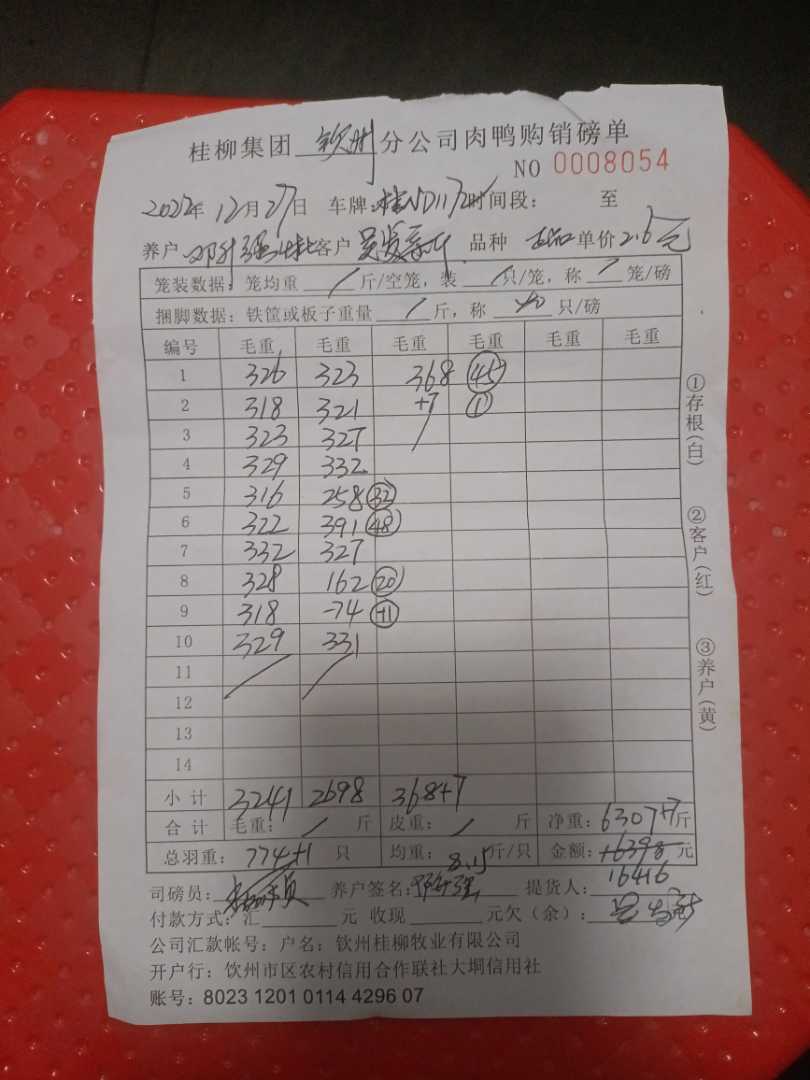 桂柳集团 钦州 分公司肉鸭购销磅单
NO 0008054
2022年 12月 27日 车牌: 时间段: 至
养户 客户 品种 单价 2.6元
笼装数据: 笼均重 / 斤/空笼, 装 / 只/笼, 称 / 笼/磅
捆脚数据: 铁筐或板子重量 / 斤, 称 40 只/磅
编号 毛重 毛重 毛重 毛重 毛重 毛重
1 326 323 368 45
2 318 321 +7 1
3 323 327 /
4 329 332
5 316 258 32
6 322 391 48
7 332 327
8 328 162 20
9 318 -74 
10 329 331
11
12
13
14
小计 3241 2698 368+7
合计 毛重: / 斤 皮重: / 斤 净重: 6307+7斤
总羽重: 774+1 只 均重: 8.15斤/只 金额: 16398元
16416
司磅员: 养户签名: 提货人:
付款方式: 汇 元 收现 元欠(余):
公司汇款帐号: 户名: 钦州桂柳牧业有限公司
开户行: 钦州市区农村信用合作联社大垌信用社
账号: 8023 1201 0114 4296 07
①存根(白)
②客户(红)
③养户(黄)